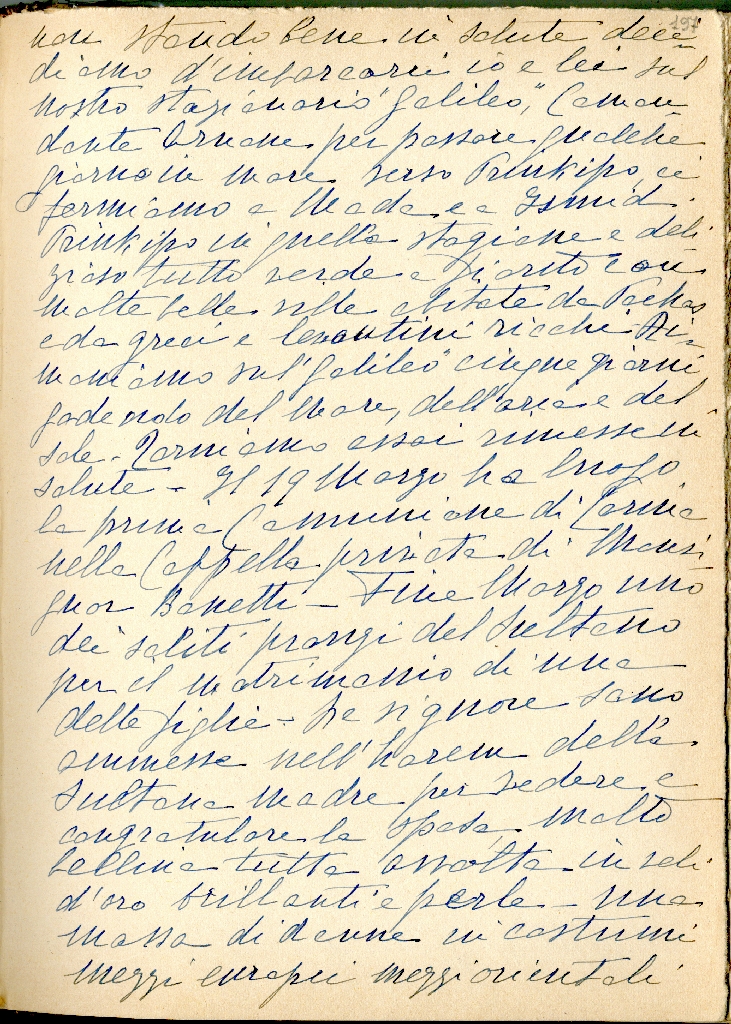 197
non stando bene in salute deci-
diamo d'imbarcarci io e lei sul
nostro stazionario "Galileo", Coman
dante Arnone per passare qualche
giorno in mare verso Prinkipo, ci
fermiamo a Moda e a Ismid.
Prinkipo in quella stagione e deli
zioso tutto verde e fiorito con
molte belle ville abitate da Pachas
e da greci e levantini ricchi. Ri-
maniamo sul "Galileo" cinque giorni
godendo del mare, dell'aria e del
sole. Torniamo assai rimesse in
salute - Il 19 Marzo ha luogo
la prima Comunione di
nella Cappella privata di Monsi
gnor Bonetti - Fine Marzo uno
dei soliti pranzi del Sultano
per il matrimonio di una
delle figlie - Le signore sono
ammesse nell'harem della
Sultana madre per vedere e
congratulare la sposa, molto
bellina tutta avvolta in veli
d'oro brillanti e perle - una
massa di donne in costumi
mezzi europei mezzi orientali